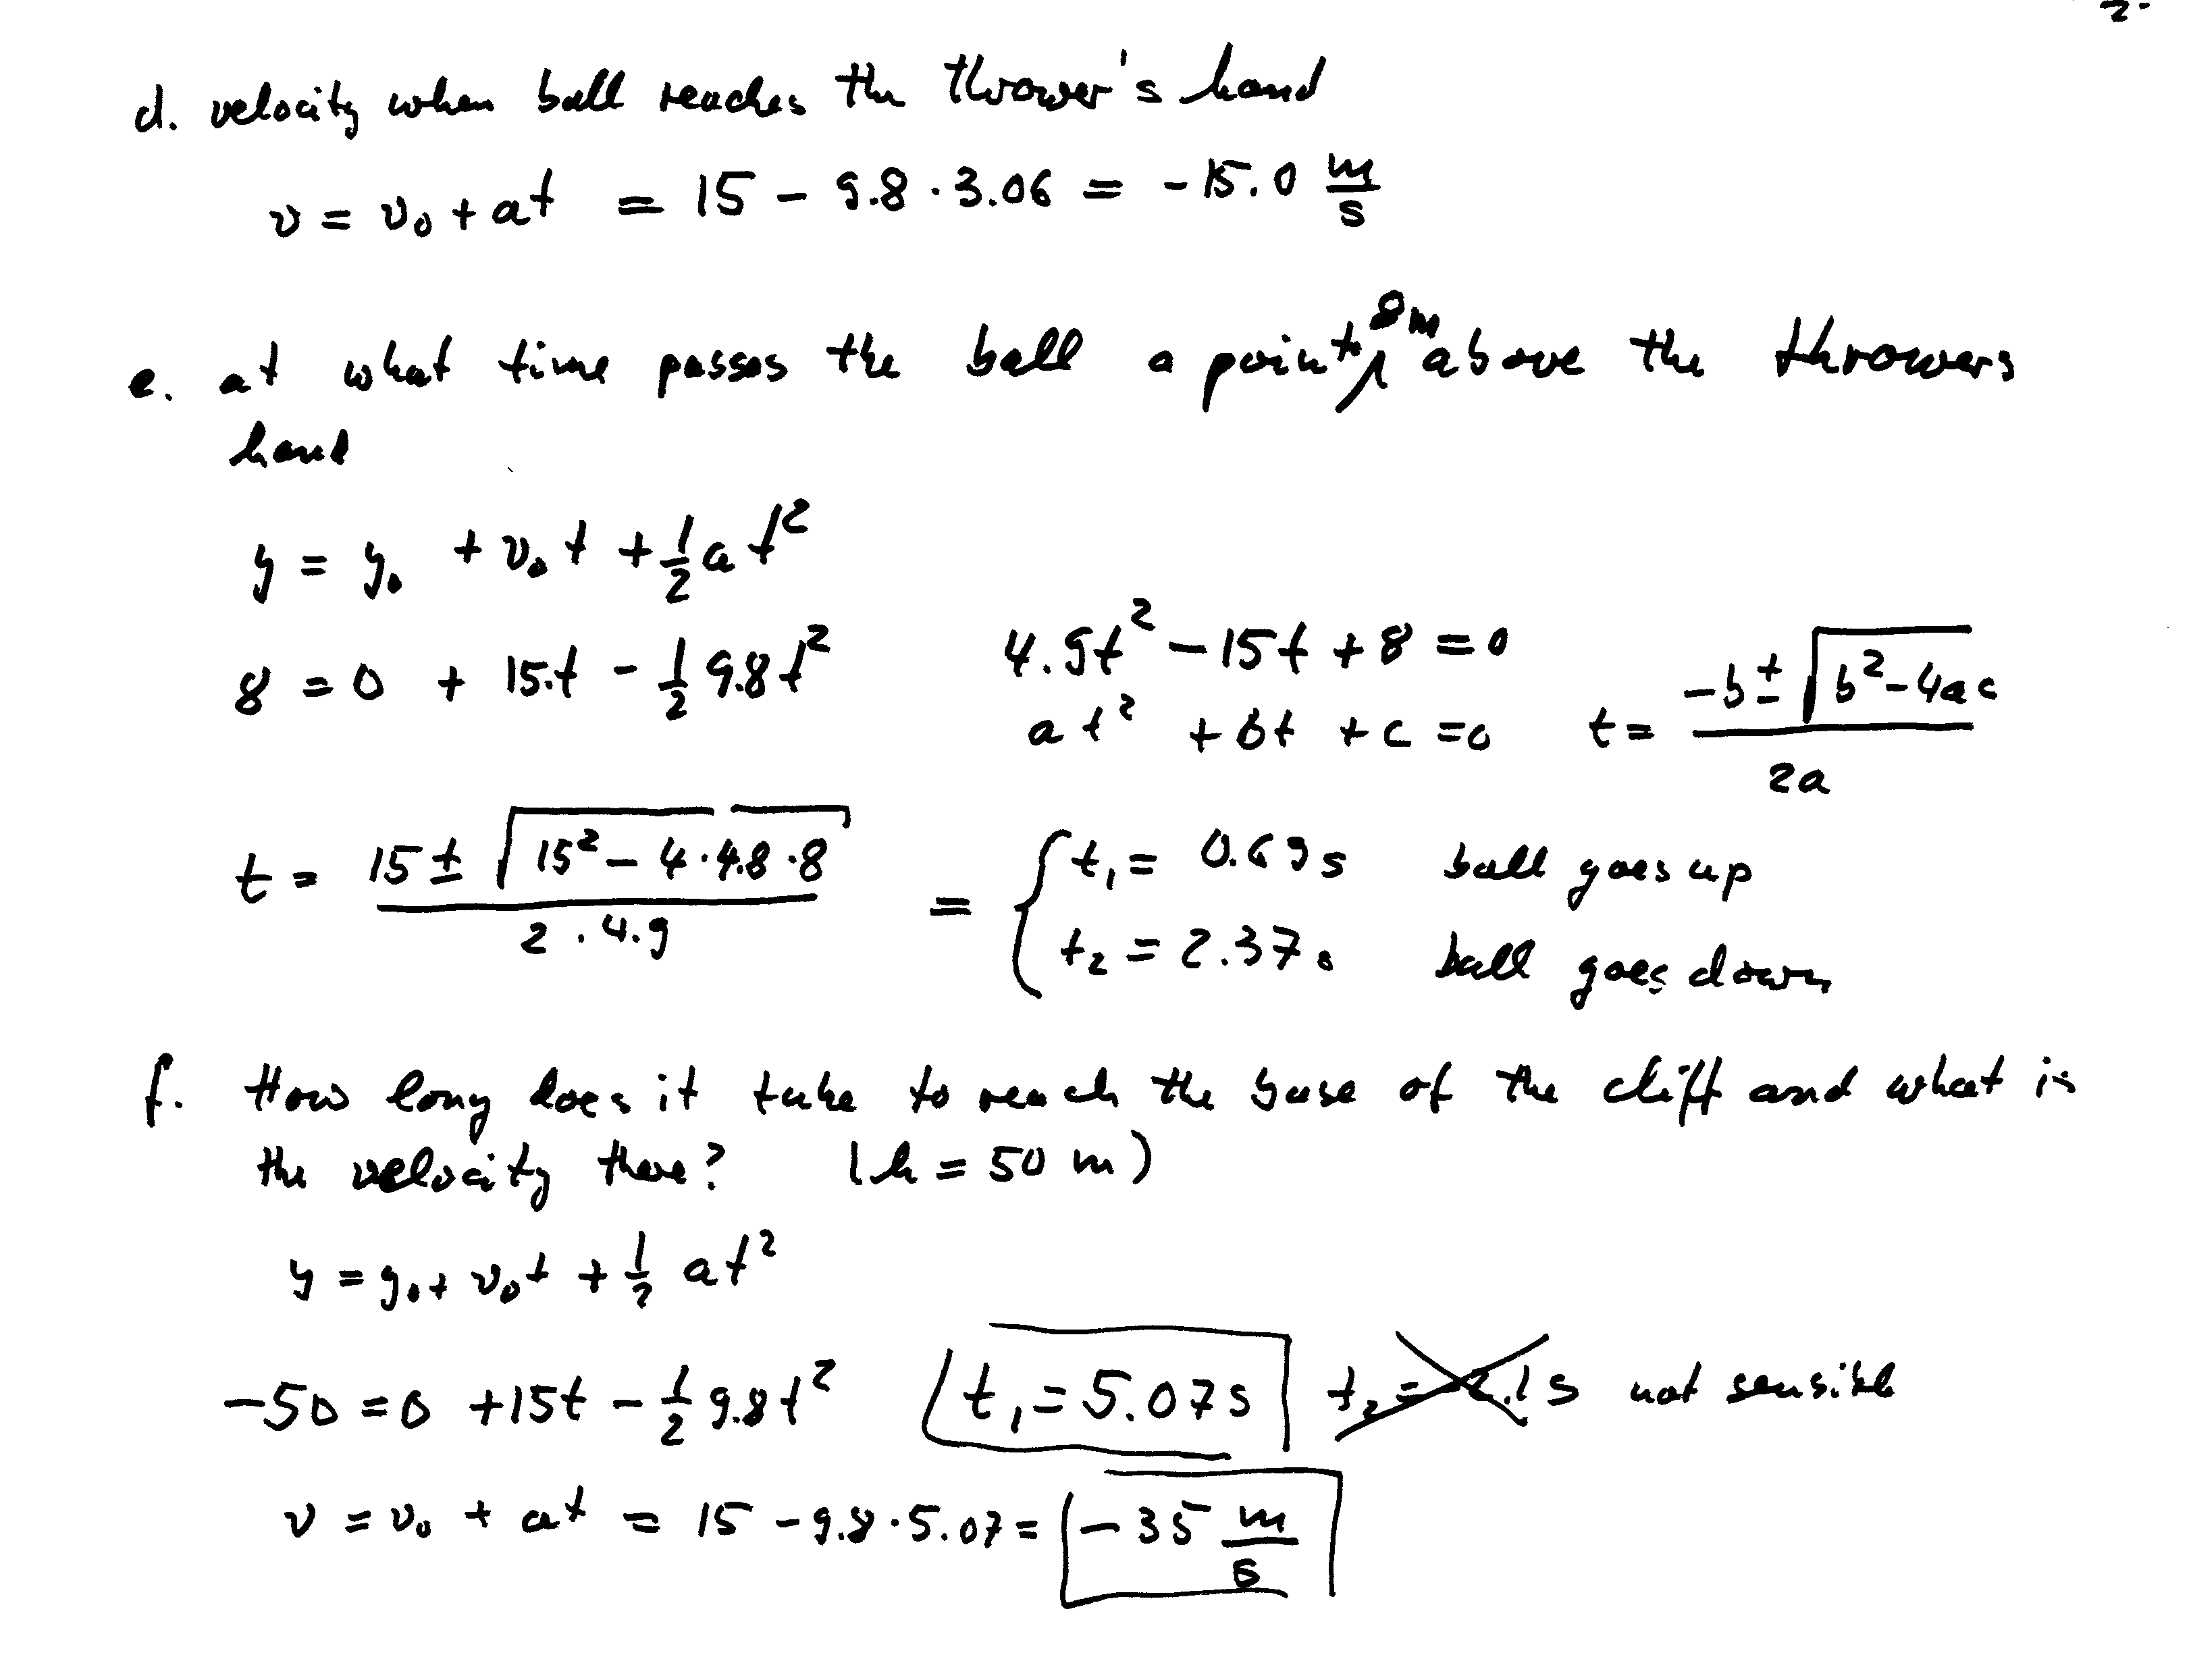 2.
d. velocity when ball reaches the thrower's hand
v = v₀ + at = 15 - 9.8 · 3.06 = -15.0 m/s
e. at what time passes the ball a point 8m above the throwers
hand
y = y₀ + v₀t + 1/2 at²
8 = 0 + 15·t - 1/2 9.8t²
4.9t² - 15t + 8 = 0
at² + bt + c = 0
t = (-b ± √(b² - 4ac)) / 2a
t = (15 ± √(15² - 4·4.8·8)) / 2·4.9 = { t₁ = 0.69s ball goes up
t₂ = 2.37s ball goes down
f. How long does it take to reach the base of the cliff and what is
the velocity there? (h = 50 m)
y = y₀ + v₀t + 1/2 at²
-50 = 0 + 15t - 1/2 9.8t² t₁ = 5.07s t₂ = s not sensible
v = v₀ + at = 15 - 9.8·5.07 = -35 m/s